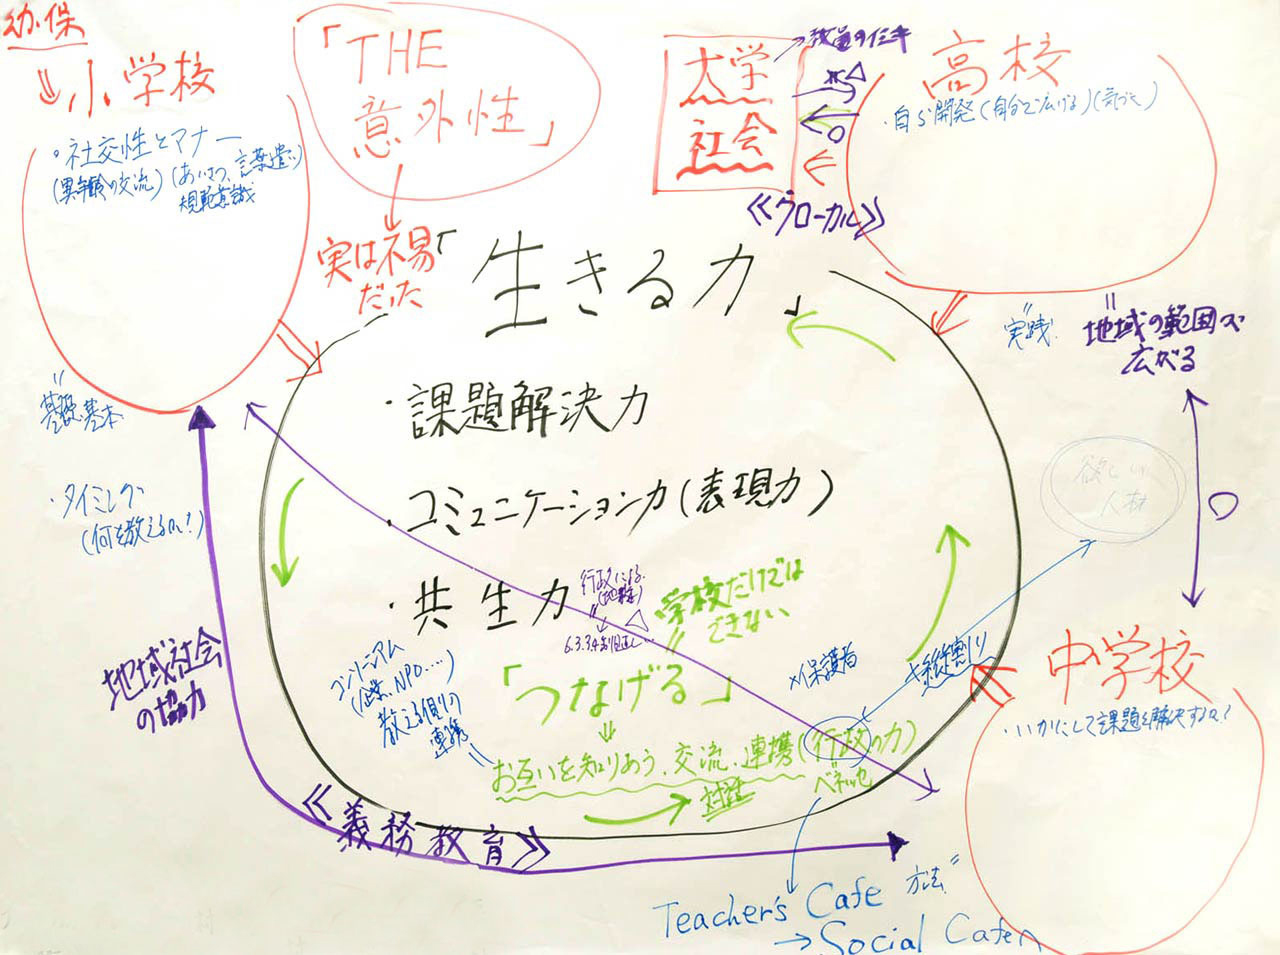 幼・保
小学校
・社交性とマナー
(異年齢の交流)(あいさつ、言葉遣い)
規範意識
「THE
意外性」
実は不易
だった
大学
社会
→教員の仕事
《グローカル》
高校
・自ら開発(自分で広げる)(気づく)
「生きる力」
・課題解決力
・コミュニケーション力(表現力)
・共生力
行政による
6.3.3.4
学校だけでは
できない
「つなげる」
お互いを知りあう、交流、連携(行政の力)
対話
ベネッセ
コンソーシアム
(企業、NPO……)
教える側の
連携
×保護者
×縦割り
実践
地域の範囲が
広がる
欲しい
人材
基礎・基本
・タイミング
(何を教えるのか?)
地域社会
の協力
《義務教育》
中学校
・いかにして課題を解決するか?
Teacher's Cafe 方法
→Social Cafeへ